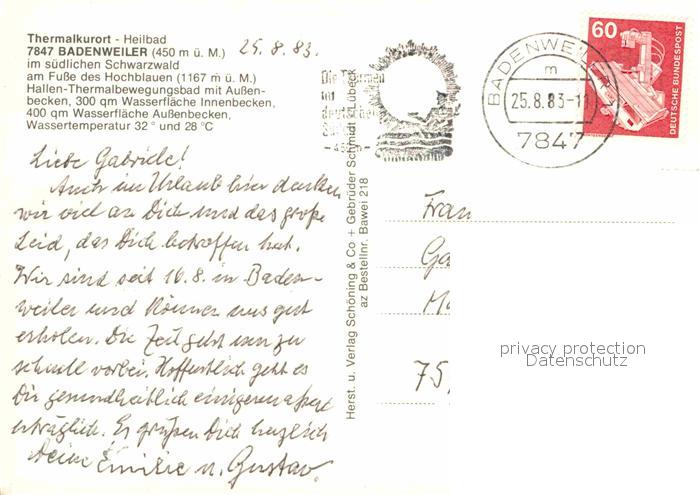 Thermalkurort - Heilbad
7847 BADENWEILER (450 m ü. M.)
im südlichen Schwarzwald
am Fuße des Hochblauen (1167 m ü. M.)
Hallen-Thermalbewegungsbad mit Außen-
becken, 300 qm Wasserfläche Innenbecken,
400 qm Wasserfläche Außenbecken,
Wassertemperatur 32° und 28 °C
25.8.83.
Liebe Gabriele!
Auch im Urlaub hier denken
wir viel an Dich und das große
Leid, das Dich betroffen hat.
Wir sind seit 16.8. in Baden-
weiler und können uns gut
erholen. Die Zeit geht nur zu
schnell vorbei. Hoffentlich geht es
Dir gesundheitlich einigermaßen
erträglich. Es grüßen Dich herzlich
Deine Emilie u. Gustav.
Herst. u. Verlag Schöning & Co + Gebrüder Schmidt Lübeck
az Bestellnr. Bawei 218
BADENWEIL
m
25.8.83-11
7847
60
DEUTSCHE BUNDESPOST
Frau
Ga
75
privacy protection
Datenschutz